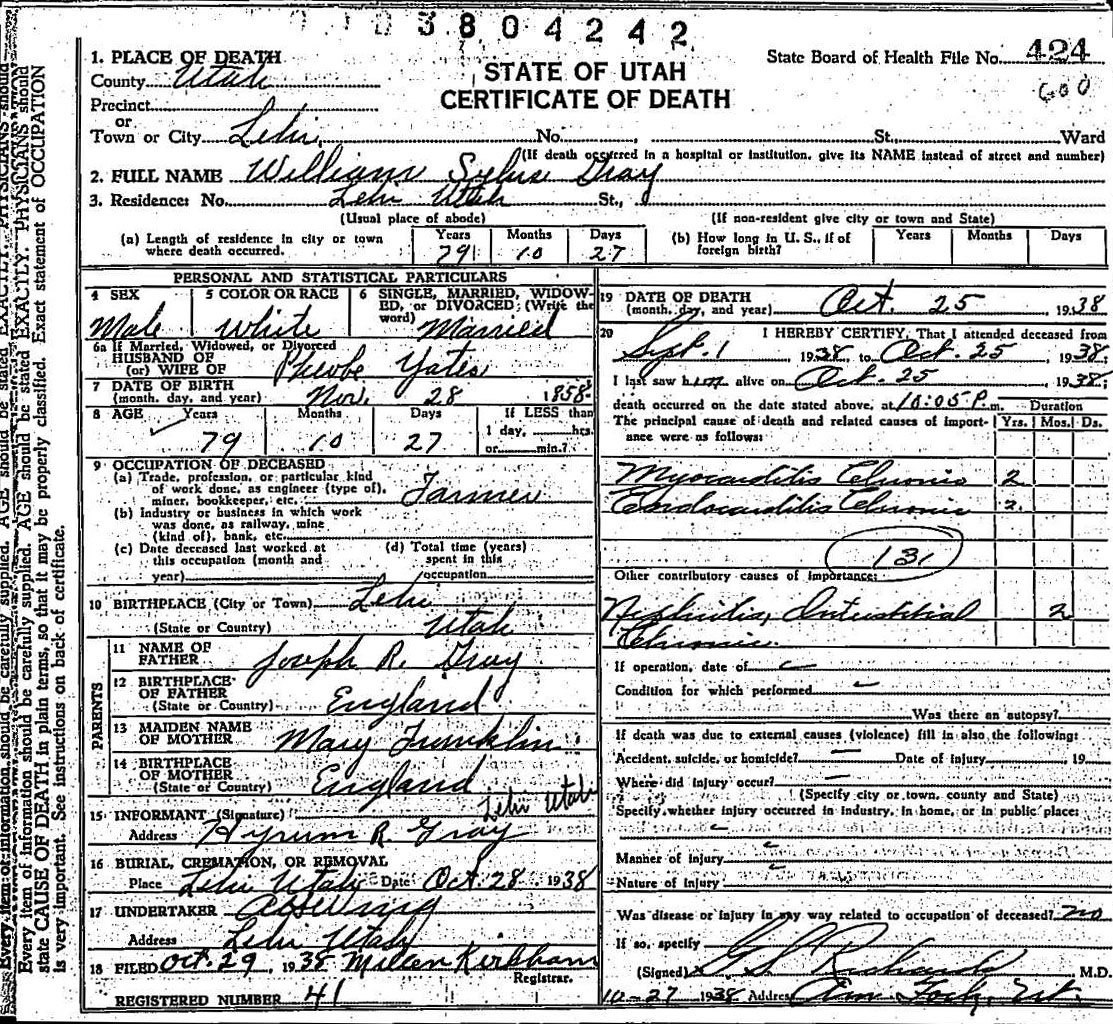 3804242
1. PLACE OF DEATH
County Utah
Precinct
or
Town or City Lehi, No. St. Ward
STATE OF UTAH
CERTIFICATE OF DEATH
State Board of Health File No. 424
600
(If death occurred in a hospital or institution, give its NAME instead of street and number)
2. FULL NAME William Gray
3. Residence: No. Lehi Utah St.,
(Usual place of abode) (If non-resident give city or town and State)
(a) Length of residence in city or town where death occurred. Years 79 Months 10 Days 27
(b) How long in U. S., if of foreign birth? Years Months Days
PERSONAL AND STATISTICAL PARTICULARS
4 SEX Male
5 COLOR OR RACE White
6 SINGLE, MARRIED, WIDOWED, or DIVORCED: (Write the word) Married
6a If Married, Widowed, or Divorced
HUSBAND OF
(or) WIFE OF Phebe Yates
7 DATE OF BIRTH
(month, day, and year) Nov. 28 1858
8 AGE Years 79 Months 10 Days 27
If LESS than
1 day, hrs.
or min.?
9 OCCUPATION OF DECEASED
(a) Trade, profession, or particular kind
of work done, as engineer (type of),
miner, bookkeeper, etc. Farmer
(b) Industry or business in which work
was done, as railway, mine
(kind of), bank, etc.
(c) Date deceased last worked at
this occupation (month and
year)
(d) Total time (years)
spent in this
occupation
10 BIRTHPLACE (City or Town) Lehi
(State or Country) Utah
PARENTS
11 NAME OF
FATHER Joseph R. Gray
12 BIRTHPLACE
OF FATHER
(State or Country) England
13 MAIDEN NAME
OF MOTHER Mary
14 BIRTHPLACE
OF MOTHER
(State or Country) England
15 INFORMANT (Signature) Hyrum R. Gray
Address Lehi Utah
16 BURIAL, CREMATION, OR REMOVAL
Place Lehi Utah Date Oct. 28 1938
17 UNDERTAKER
Address Lehi Utah
18 FILED Oct. 29, 1938 Kirkham
Registrar.
REGISTERED NUMBER 41
19 DATE OF DEATH
(month, day, and year) Oct. 25 1938
20 I HEREBY CERTIFY, That I attended deceased from
Sept. 1 1938, to Oct. 25 1938;
I last saw him alive on Oct. 25 1938;
death occurred on the date stated above, at 10:05 P. m. Duration
The principal cause of death and related causes of importance were as follows: Yrs. Mos. Ds.
Myocarditis Chronic 2
Endocarditis Chronic 2
131
Other contributory causes of importance:
Nephritis, Interstitial 2
Chronic.
If operation, date of
Condition for which performed
Was there an autopsy?
If death was due to external causes (violence) fill in also the following:
Accident, suicide, or homicide? Date of injury 19
Where did injury occur?
(Specify city or town, county and State)
Specify whether injury occurred in industry, in home, or in public place:
Manner of injury
Nature of injury
Was disease or injury in any way related to occupation of deceased? no
If so, specify
(Signed) Richards M.D.
10-27 1938 Address Am. Fork, Ut.
Every item of information should be carefully supplied. AGE should be stated EXACTLY. PHYSICIANS should
Every item of information should be carefully supplied. AGE should be stated EXACTLY. PHYSICIANS should
state CAUSE OF DEATH in plain terms, so that it may be properly classified. Exact statement of OCCUPATION
is very important. See instructions on back of certificate.